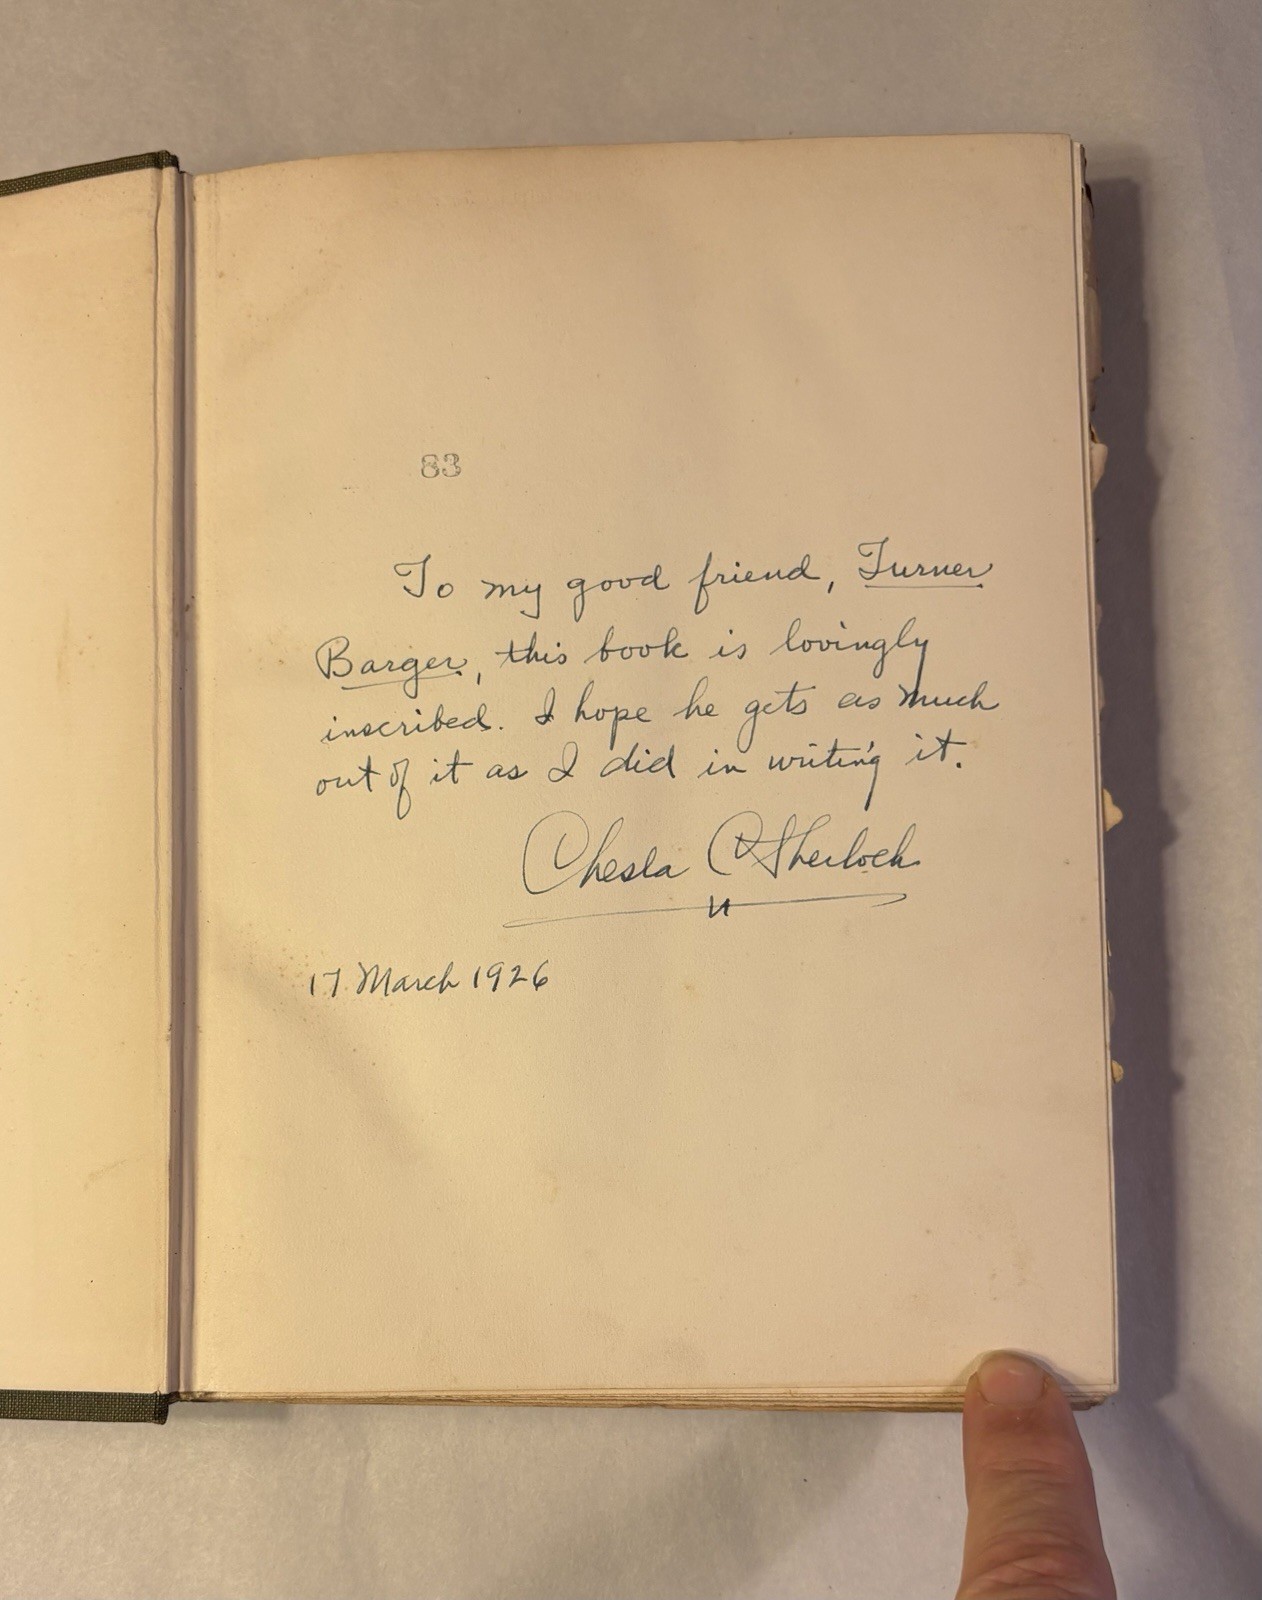 83
To my good friend, Turner
Barger, this book is lovingly
inscribed. I hope he gets as much
out of it as I did in writing it.
Chesla C Sherlock
17 March 1926